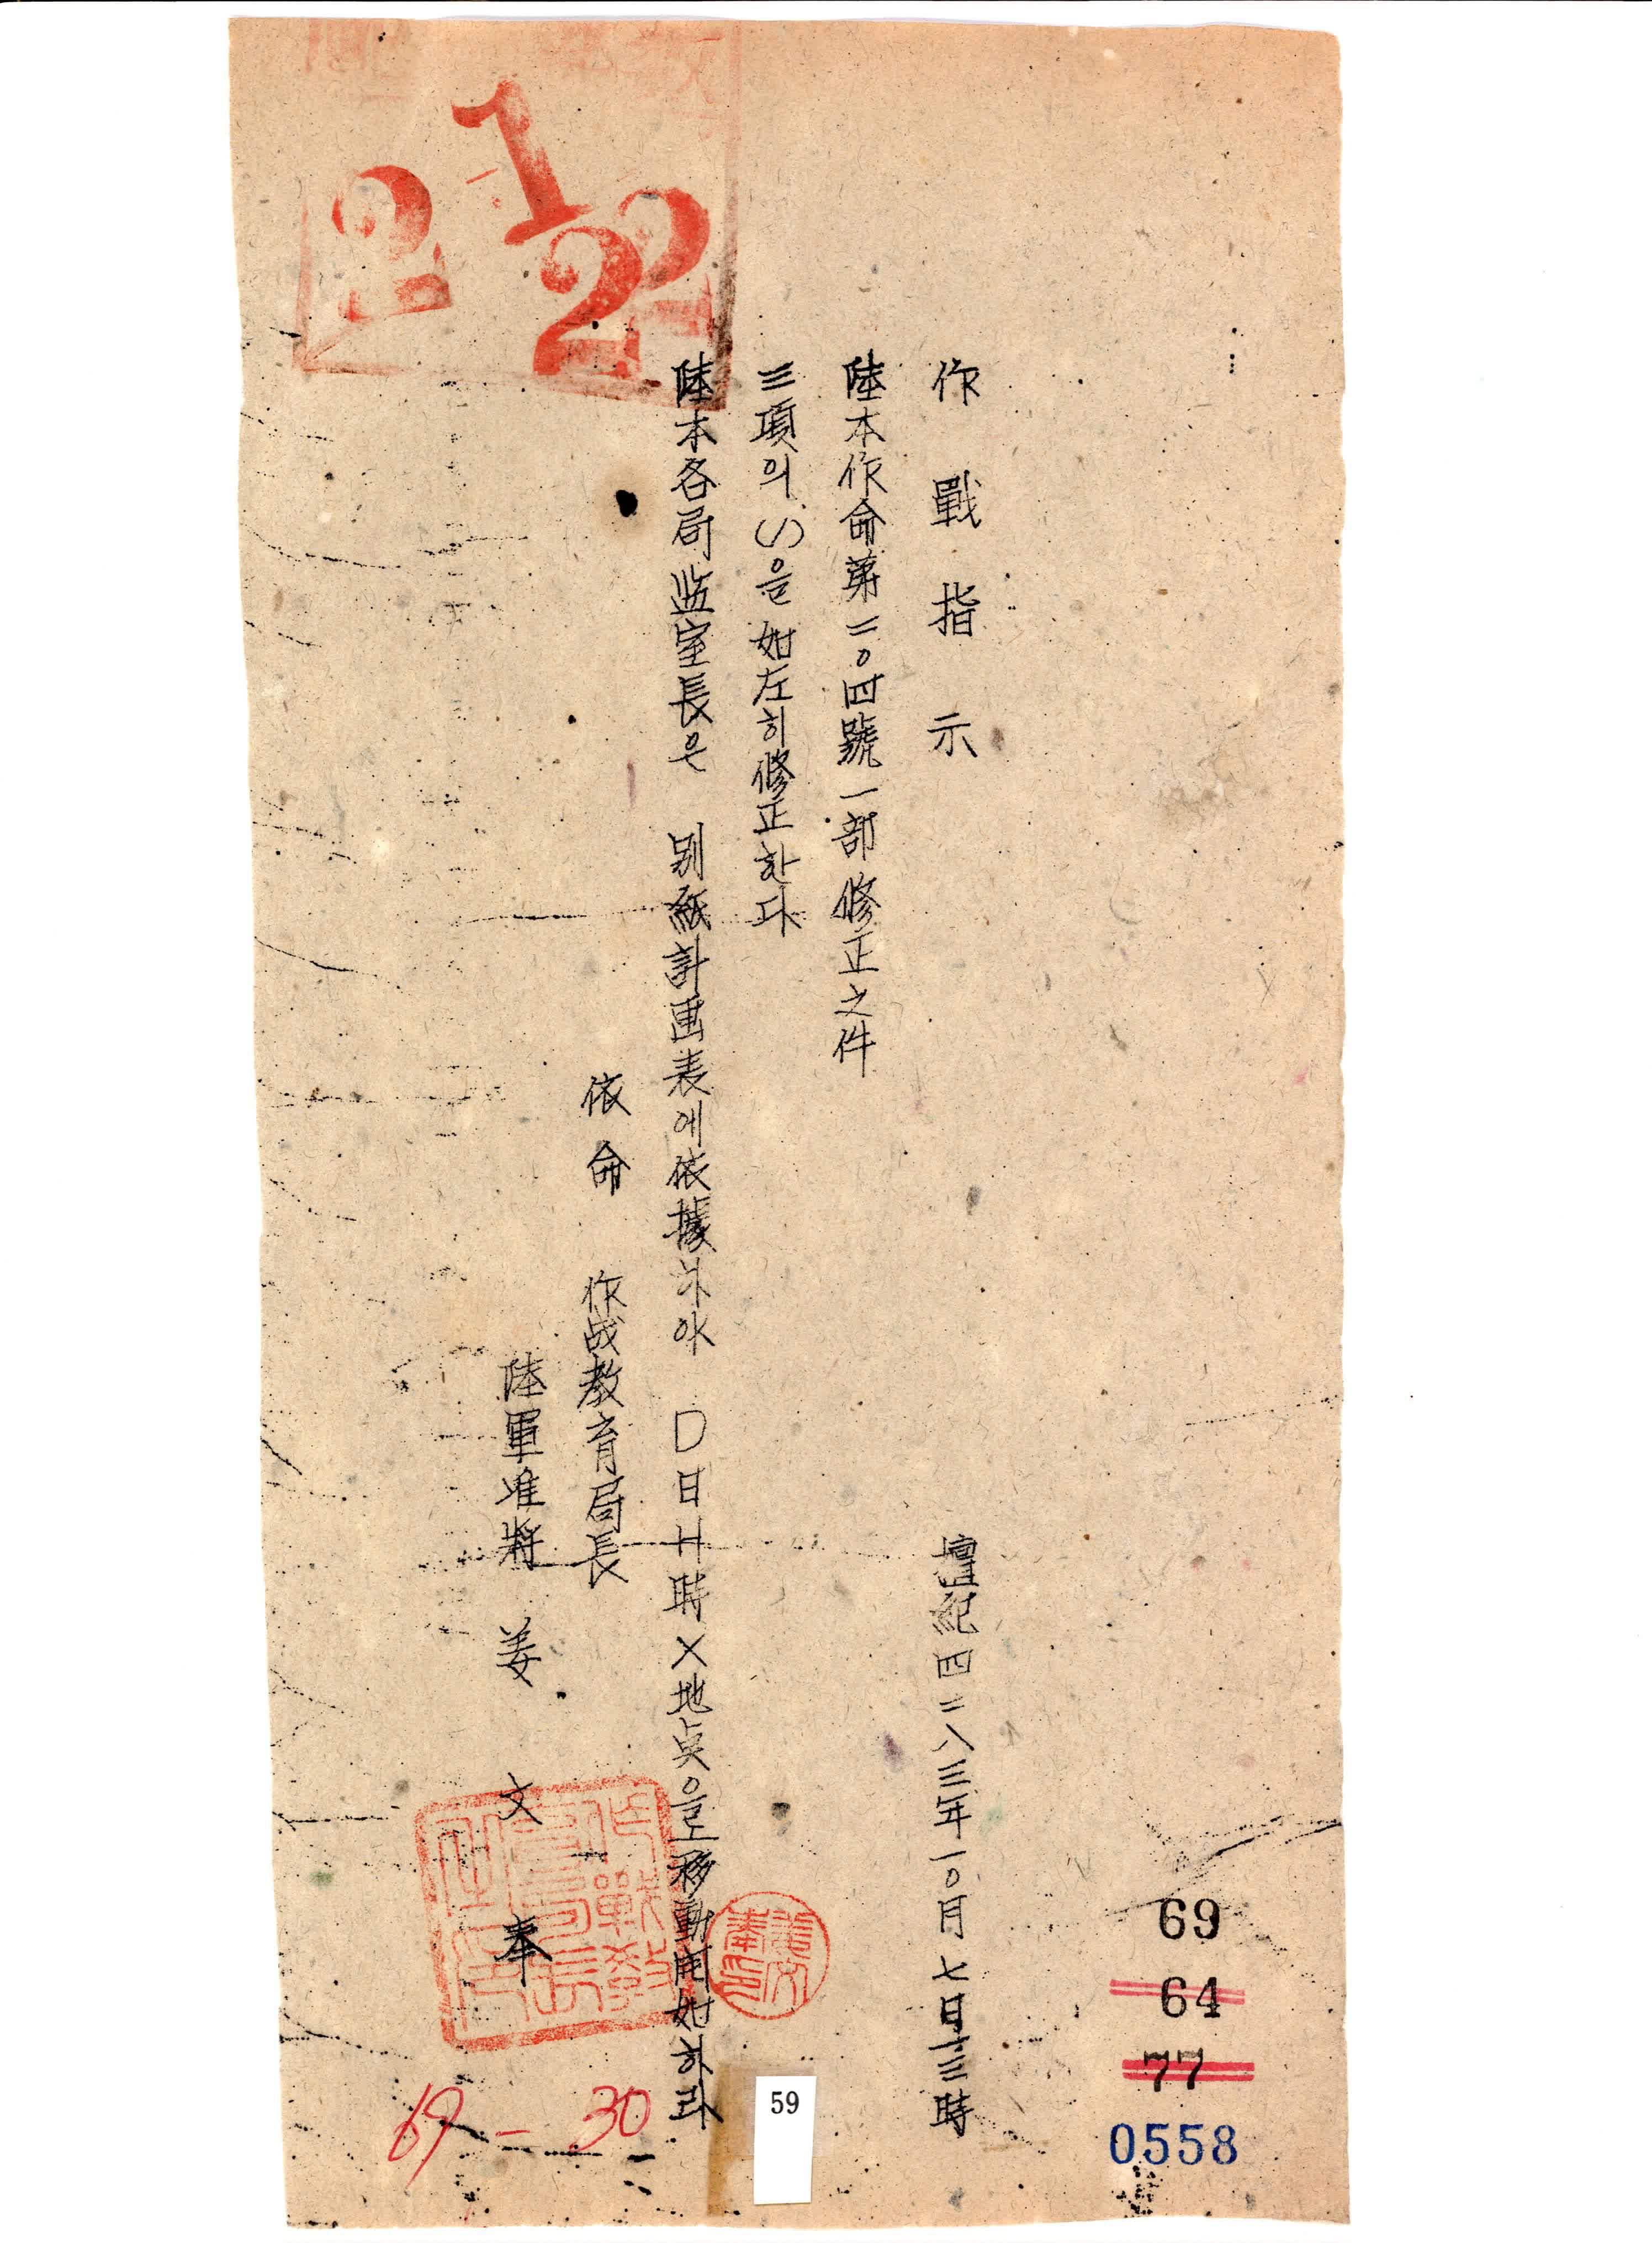 作戰指示
檀紀四二八三年一〇月七日一三時
陸本作命第二〇四號一部修正之件
三項의(ㄱ)을如左히修正한다
陸本各局监室長은 別紙計画表에依據하야 D日H時X地点으로移動開始하라
依命 作战敎育局長
陸軍准將 姜文奉
122
69
64
77
0558
59
69-30